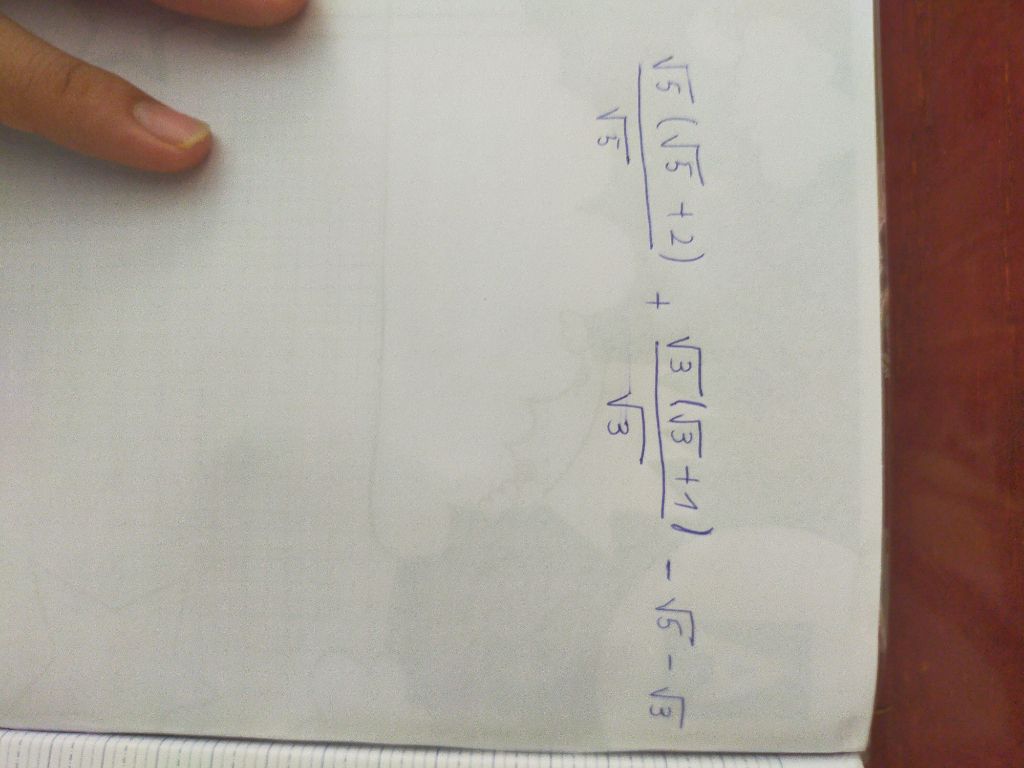 √5(√5 + 2)/√5 + √3(√3 + 1)/√3 - √5 - √3